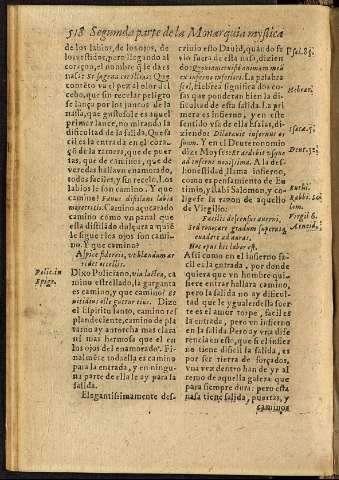 518 Segunda parte de la Monarquia mystica
de los labios, de los ojos, de
los vestidos, pero llegando al
coraçon, el nombre q̃ le da es
nasa: Se sagena cor illius: Que
contẽto va el pez al olor del
cebo, que sin recelar peligro
se lança por los juncos de la
nasa, que gustoso le es aquel
primer lance, no mirando la
dificultad de la salida. Que fa
cil es la entrada en el cora-
çõ de la ramera, que de puer
tas, que de caminos, que de
veredas hallavn enamorado,
todas faciles, y su recelo. Los
labios le son camino. Y que
camino? Favus distilans labia
meretricis. Camino açucarado
camino como vn panal que
esta distilãdo dulçura a quiẽ
le sigue: los ojos son camı
no. Y que camino?
Dixo Policiano, via lactea, ca
mino estrellado, la garganta
es camino, y que camino? es
nitidius olle guttur eius. Dize
el Espiritu santo, camino res
plandeciente, camino de pla
ta no ay antorcha mas clara
ni mas hermosa que el en
los ojos del enamorado. Fi-
nalmẽte toda ella es camino
para la entrada, y en ningu-
na parte de ella le ay para la
salida.
Elegantissimamente des-
Polic. in
Epigr.
criuio esto Dauid, quando se
vio fuera de esta nasa, diziendo:
ex inferno inferiori. La palabra
Seol, Hebrea significa dos co-
sas que ponderan bien la di-
ficultad de esta salida. La prime
ra es infierno, y en este
sentido vsa de ella Isaias, di-
ziendo: Dilatavit infernus os
suum. Y en el Deuteronomio
dize Moyses: Et ardebit vsque
ad inferni novissima. A la des-
honestidad llama infierno,
como es pensamiento de Eu
timio, y Rabi Salomon, y co-
ligese la razon de aquello
de Virgilio:
Facilis descensus averni,
Sed revocare gradum superasq̃
evadere ad auras.
Hoc opus hic labor est.
Assi como en el infierno fa-
cil es la entrada, por donde
quiera que vn hombre qui-
siere entrar hallara camino,
pero la salida no ay dificul-
tad que le yguale: desta suer
te es el amor torpe, facil es
la entrada, pero vn infierno
en la salida. Pero ay vna dife
rencia en esto, que si el infier
no tiene dificil la salida, es
por ser tierra de forçados,
vna vez dentro han de yr al
remo de aquella galera que
para siempre durara: pero esta
nasa tiene salida, puertas, y
caminos
Psal. 85.
Hebrai.
Isaiæ. 5.
Deut. 32.
Euthi.
Rabbi. So
lom.
Virgil. 6.
Æneid.